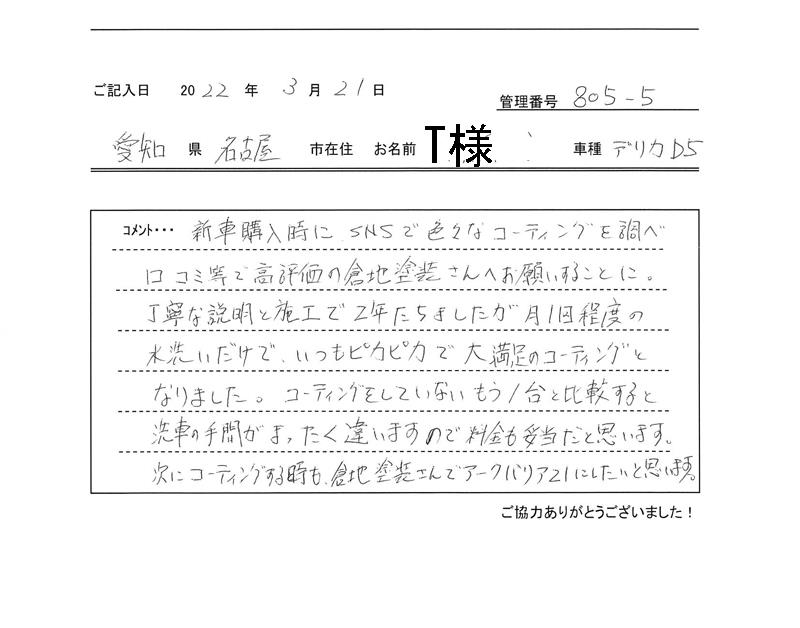 ご記入日 2022年 3月21日
管理番号 805-5
愛知 県 名古屋 市在住 お名前 T様 車種 デリカD5
コメント・・・ 新車購入時に、SNSで色々なコーティングを調べ
口コミ等で高評価の倉地塗装さんへお願いすることに。
丁寧な説明と施工で2年たちましたが月1回程度の
水洗いだけで、いつもピカピカで大満足のコーティングと
なりました。コーティングをしていないもう1台と比較すると
洗車の手間がまったく違いますので料金も妥当だと思います。
次にコーティングする時も、倉地塗装さんでアークバリア21にしたいと思います。
ご協力ありがとうございました!